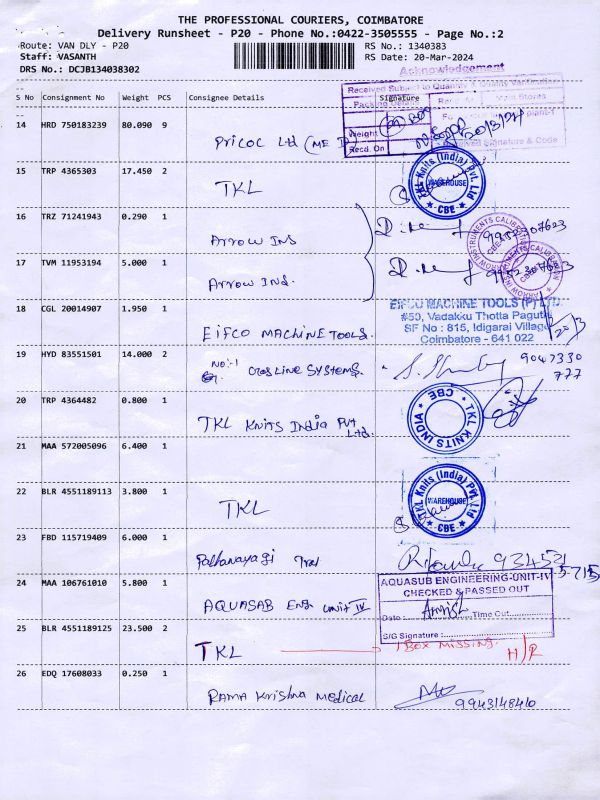 THE PROFESSIONAL COURIERS, COIMBATORE
Delivery Runsheet - P20 - Phone No.:0422-3505555 - Page No.:2
Route: VAN DLY - P20 RS No.: 1340383
Staff: VASANTH RS Date: 20-Mar-2024
DRS No.: DCJB134038302
Acknowledgement
S No Consignment No Weight PCS Consignee Details Signature
Received Subject to Quantity & Quality Verification
Packing Details
Weight
Recd. On
Signature & Code
14 HRD 750183239 80.090 9
Pricol Ltd
20/3/24
15 TRP 4365303 17.450 2
TKL
TKL Knits (India) Pvt. Ltd
WAREHOUSE
CBE
16 TRZ 71241943 0.290 1
Arrow Ins
9952307623
ARROW INSTRUMENTS CALIBRATION
CBE
17 TVM 11953194 5.000 1
Arrow Ind.
9952307623
18 CGL 20014907 1.950 1
EIFCO MACHINE TOOLS.
EIFCO MACHINE TOOLS (P) LTD.
#50, Vadakku Thotta Paguthi
SF No : 815, Idigarai Village
Coimbatore - 641 022
20/3
19 HYD 83551501 14.000 2
No:-1
Crossline Systems.
9047330
777
20 TRP 4364482 0.800 1
TKL Knits India Pvt
Ltd.
TKL KNITS INDIA
CBE
21 MAA 572005096 6.400 1
22 BLR 4551189113 3.800 1
TKL
TKL Knits (India) Pvt. Ltd
WAREHOUSE
CBE
23 FBD 115719409 6.000 1
24 MAA 106761010 5.800 1
AQUASAB Eng Unit IV
AQUASUB ENGINEERING-UNIT-IV
CHECKED & PASSED OUT
Date : Time Out
S/G Signature :
25 BLR 4551189125 23.500 2
TKL
1 Box Missing.
H/R
26 EDQ 17608033 0.250 1
Rama Krishna Medical
9943148410